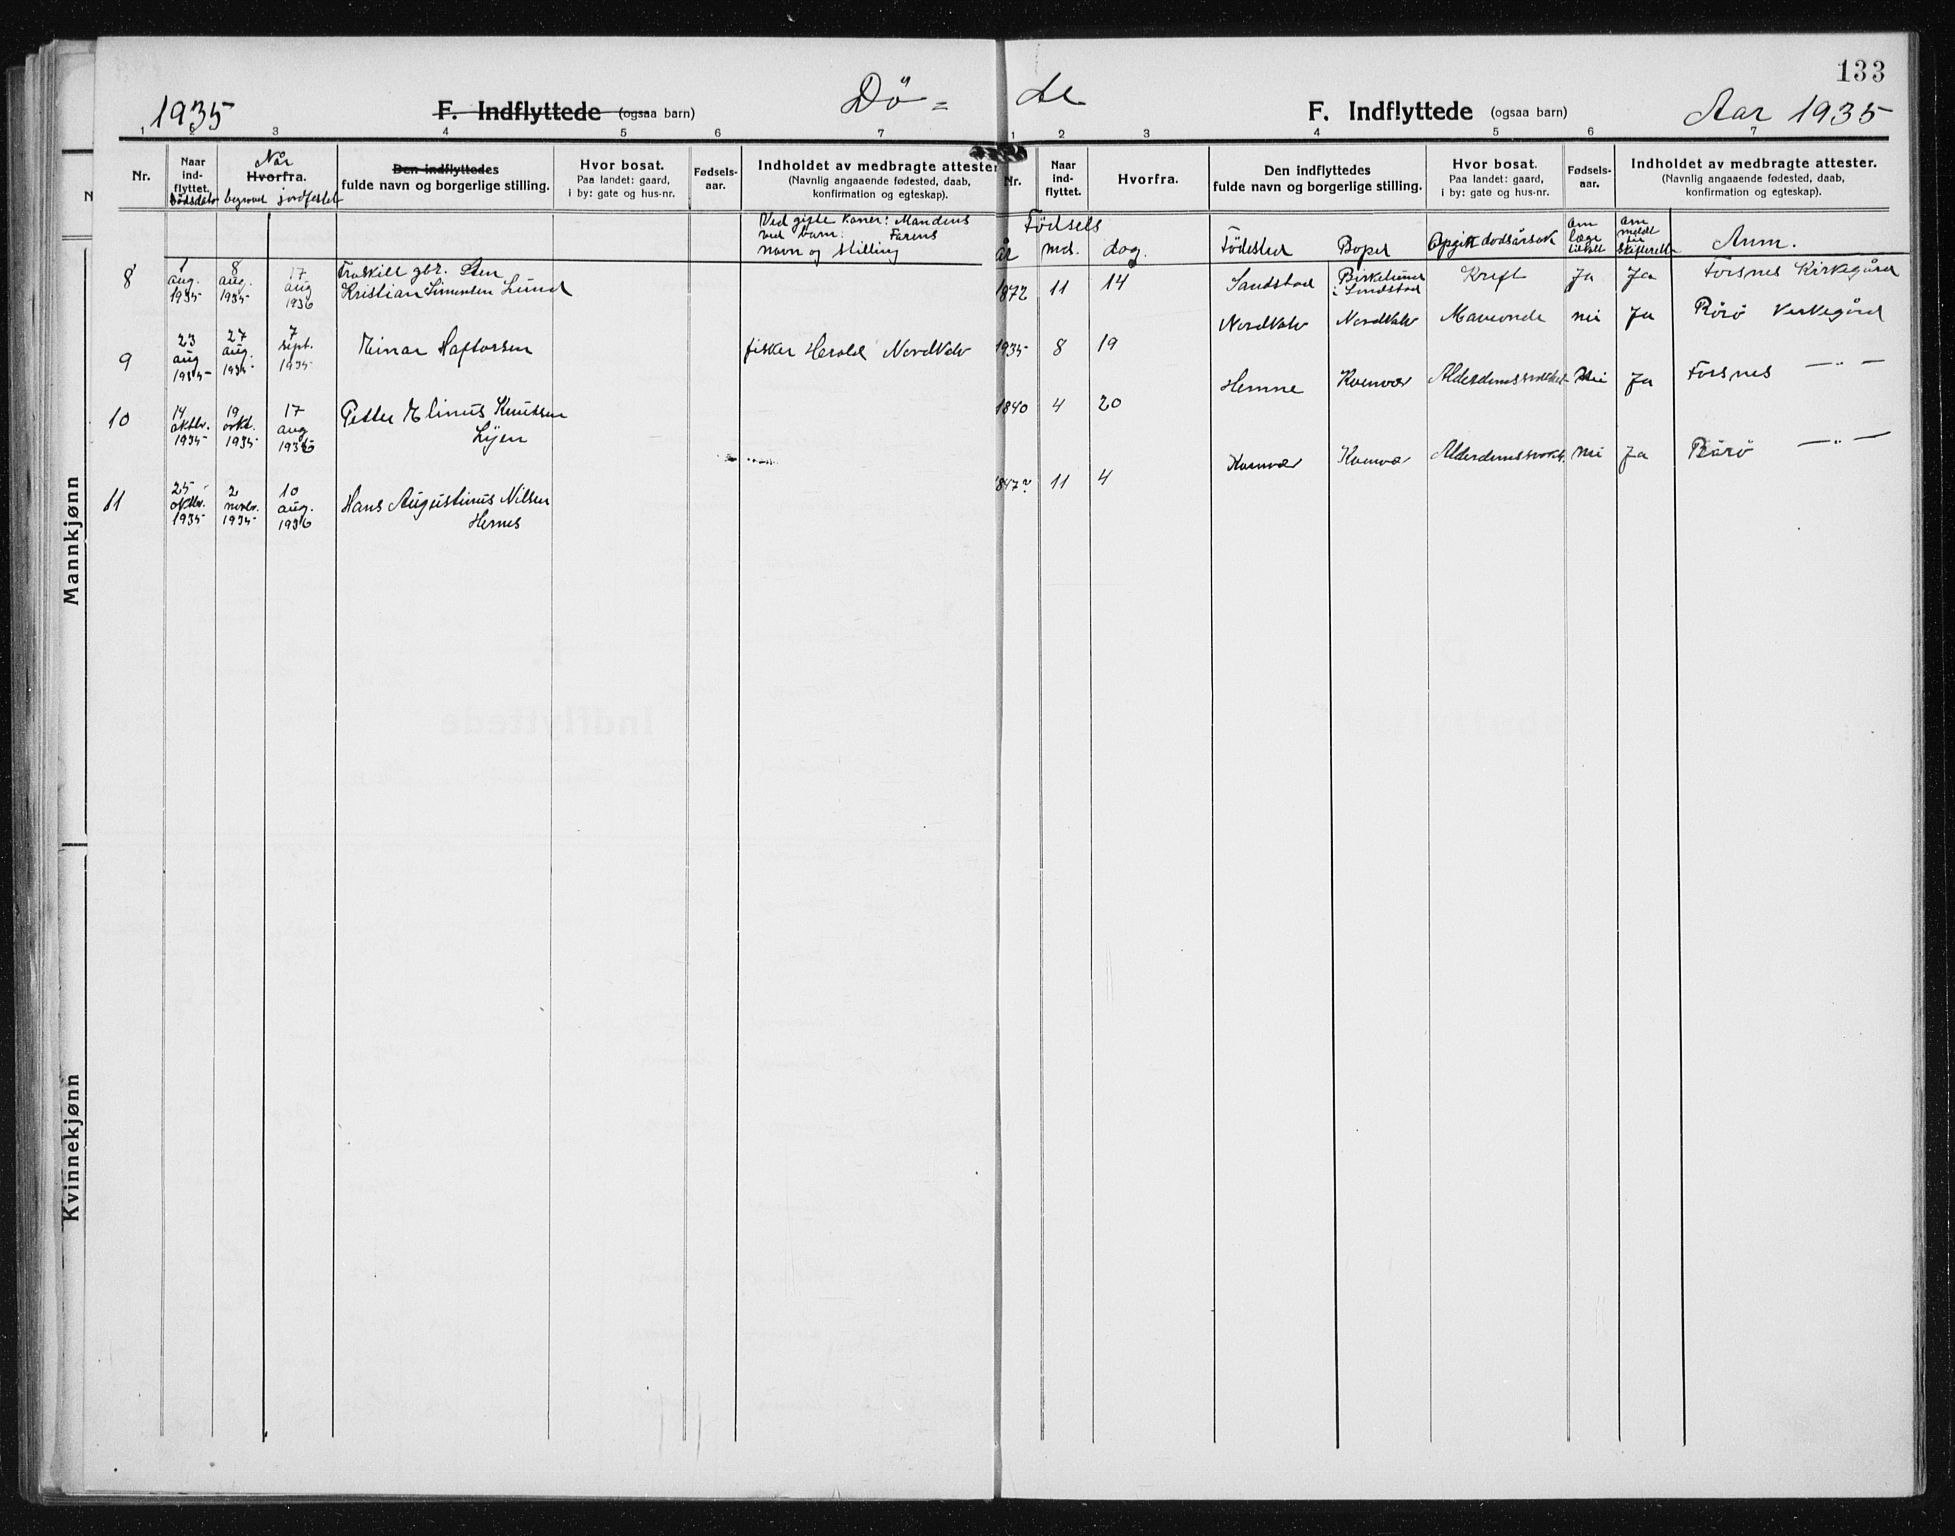 133
1935
F. Indflyttede (ogsaa barn)
Dö =
de
F. Indflyttede (ogsaa barn)
Aar 1935
1 2 3 4 5 6 7
1 2 3 4 5 6 7
Nr.
Naar ind- flyttet.
Dødsdato
Når
Hvorfra.
begravet jordfestet
Den indflyttedes
fulde navn og borgerlige stilling.
Hvor bosat.
Paa landet: gaard,
i by: gate og hus-nr.
Fødsels-
aar.
Indholdet av medbragte attester
(Navnlig angaaende fødested, daab,
konfirmation og egteskap).
Nr.
Naar ind- flyttet.
Hvorfra.
Den indflyttedes
fulde navn og borgerlige stilling.
Hvor bosat.
Paa landet: gaard,
i by: gate og hus-nr.
Fødsels-
aar.
Indholdet av medbragte attester.
(Navnlig angaaende fødested, daab,
konfirmation og egteskap).
Ved gifte koner: Mandens
ved barn: Farens
navn og stilling
Födsels
år md. dag.
Födested
Bopel
Opgitt dødsårsak
om læge tilkaldt
om meldt til skifterett
Anm.
8
1 aug. 1935
8 aug. 1935
17 aug 1936
gbr.
Kristian Simonsen Lund
1872 11 14
Sandstad
i Sandstad
Kreft
Ja
Ja
Forsnes Kirkegård
9
23 aug 1935
27 aug. 1935
7 sept. 1935
Einar Haftorsen
fisker Herold Nordkvalv
1935 8 19
Maveonde
nei
Ja
Kirkegård
10
14 oktbr. 1935
19 okt. 1935
17 aug 1936
Petter Elinus Knutsen
1840 4 20
Hemne
Kvenvær
Alderdomssvakhet
nei
Ja
Forsnes —"—
11
25 oktbr. 1935
2 novbr. 1935
10 aug. 1936
Hans Augustinus Nilsen
Hernes
1847? 11 4
Kvenvær
Kvenvær
Alderdomssvakh.
nei
Ja
—"—
Mannkjønn
Kvinnekjønn